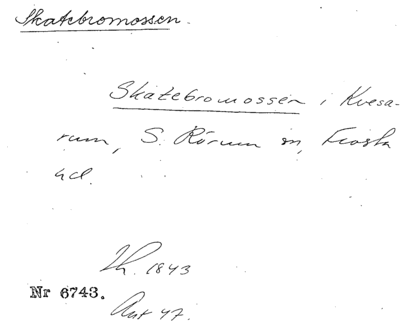 Skatebromossen.
Skatebromossen i Kvesa-
rum, S. Rörum sn, Frosta
hd.
Lh. 1843
Nr 6743.
Ant 47.